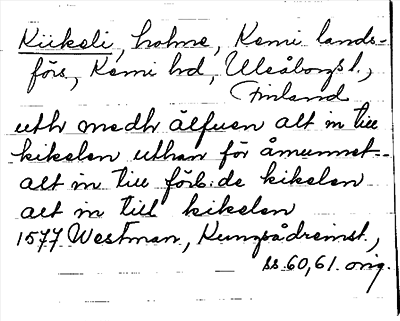 Kiikeli, holme, Kemi lands-
förs., Kemi hd, Uleåborgs l.,
Finland
uth medh älfuen alt in till
kikelen uthan för åmunnet-
alt in till förb:de kikelen
alt in till kikelen
1577 Westman, Kungsådreinst.,
ss. 60, 61. orig.